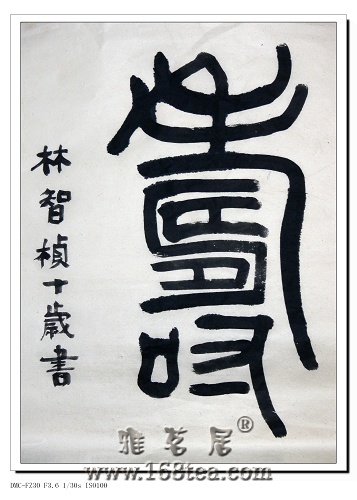 壽
林智楨十歲書
雅茗居®
www.168tea.com
DMC-FZ30 F3.6 1/30s ISO100